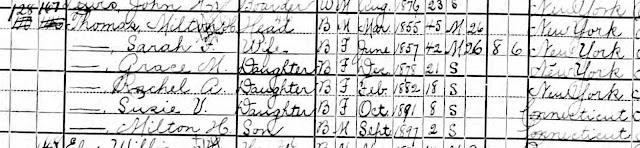 John Boarder W M Aug. 1876 23 S New York
128 167 Thomas, Milton H Head B M Mar. 1855 45 M 26 New York
—, Sarah F. Wife B F June 1857 42 M 26 8 6 New York
—, Grace M. Daughter B F Dec 1878 21 S New York
—, Rachel A. Daughter B F Feb. 1882 18 S New York
—, Susie V. Daughter B F Oct 1891 8 S Connecticut
—, Milton H. Son B M Sept 1897 2 S Connecticut